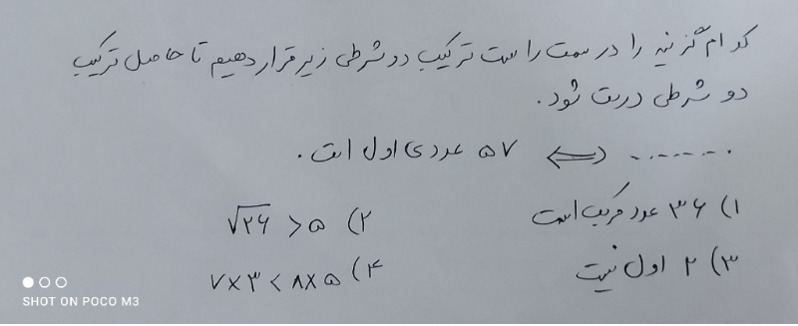 کدام گزینه را در سمت راست ترکیب دو شرطی زیر قرار دهیم تا حاصل ترکیب
دو شرطی درست شود.
۵۷ عددی اول است. ⇔ ........
۱) ۳۶ عدد مرکب است
۲) √۲۶ > ۵
۳) ۲ اول نیست
۴) ۷×۳ < ۸×۵
SHOT ON POCO M3